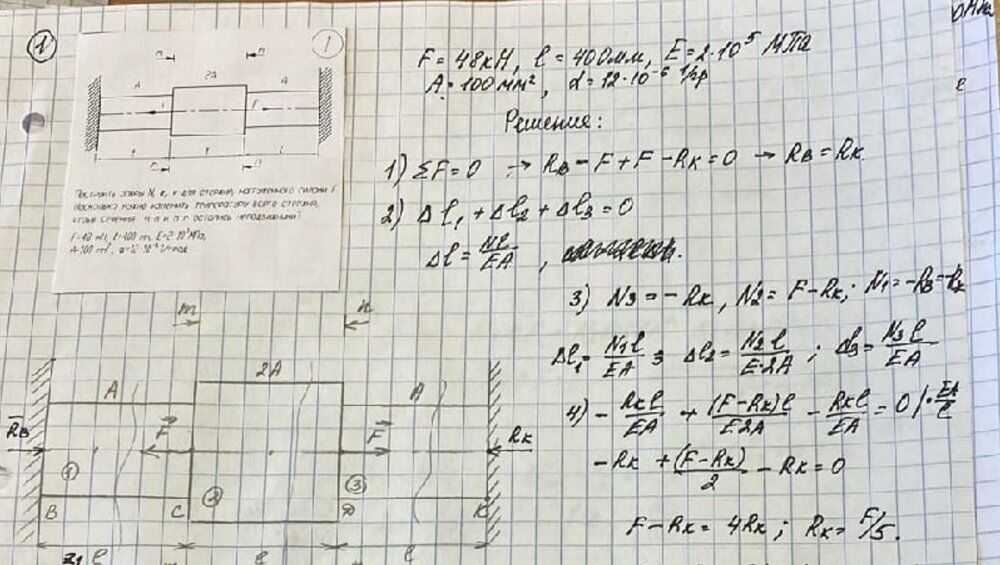 1
1
n
n
A
2A
A
F
l
l
l
Построить эпюры N, σ, x для стержня, нагруженного силами F.
Насколько нужно изменить температуру всего стержня,
чтобы сечения m-m и n-n остались неподвижными?
E=2·10⁵МПа,
F = 48кН, l = 400мм, E = 2·10⁵ МПа
A = 100 мм², α = 12·10⁻⁶ 1/гр
Решение:
1) ΣF = 0 → RB − F + F − RK = 0 → RB = RK.
2) Δl₁ + Δl₂ + Δl₃ = 0
Δl = Nl/EA ,
3) N3 = −RK, N2 = F−RK; N1 = −RB = −RK
Δl₁ = N1l/EA ; Δl₂ = N2l/E·2A ; Δl₃ = N3l/EA
4) − RKl/EA + (F−RK)l/E2A − RKl/EA = 0 | · EA/l
−RK + (F−RK)/2 − RK = 0
F − RK = 4RK ; RK = F/5.
m
n
A
2A
A
RB
F
F
RK
1
2
3
B
C
D
K
z1
l
l
l